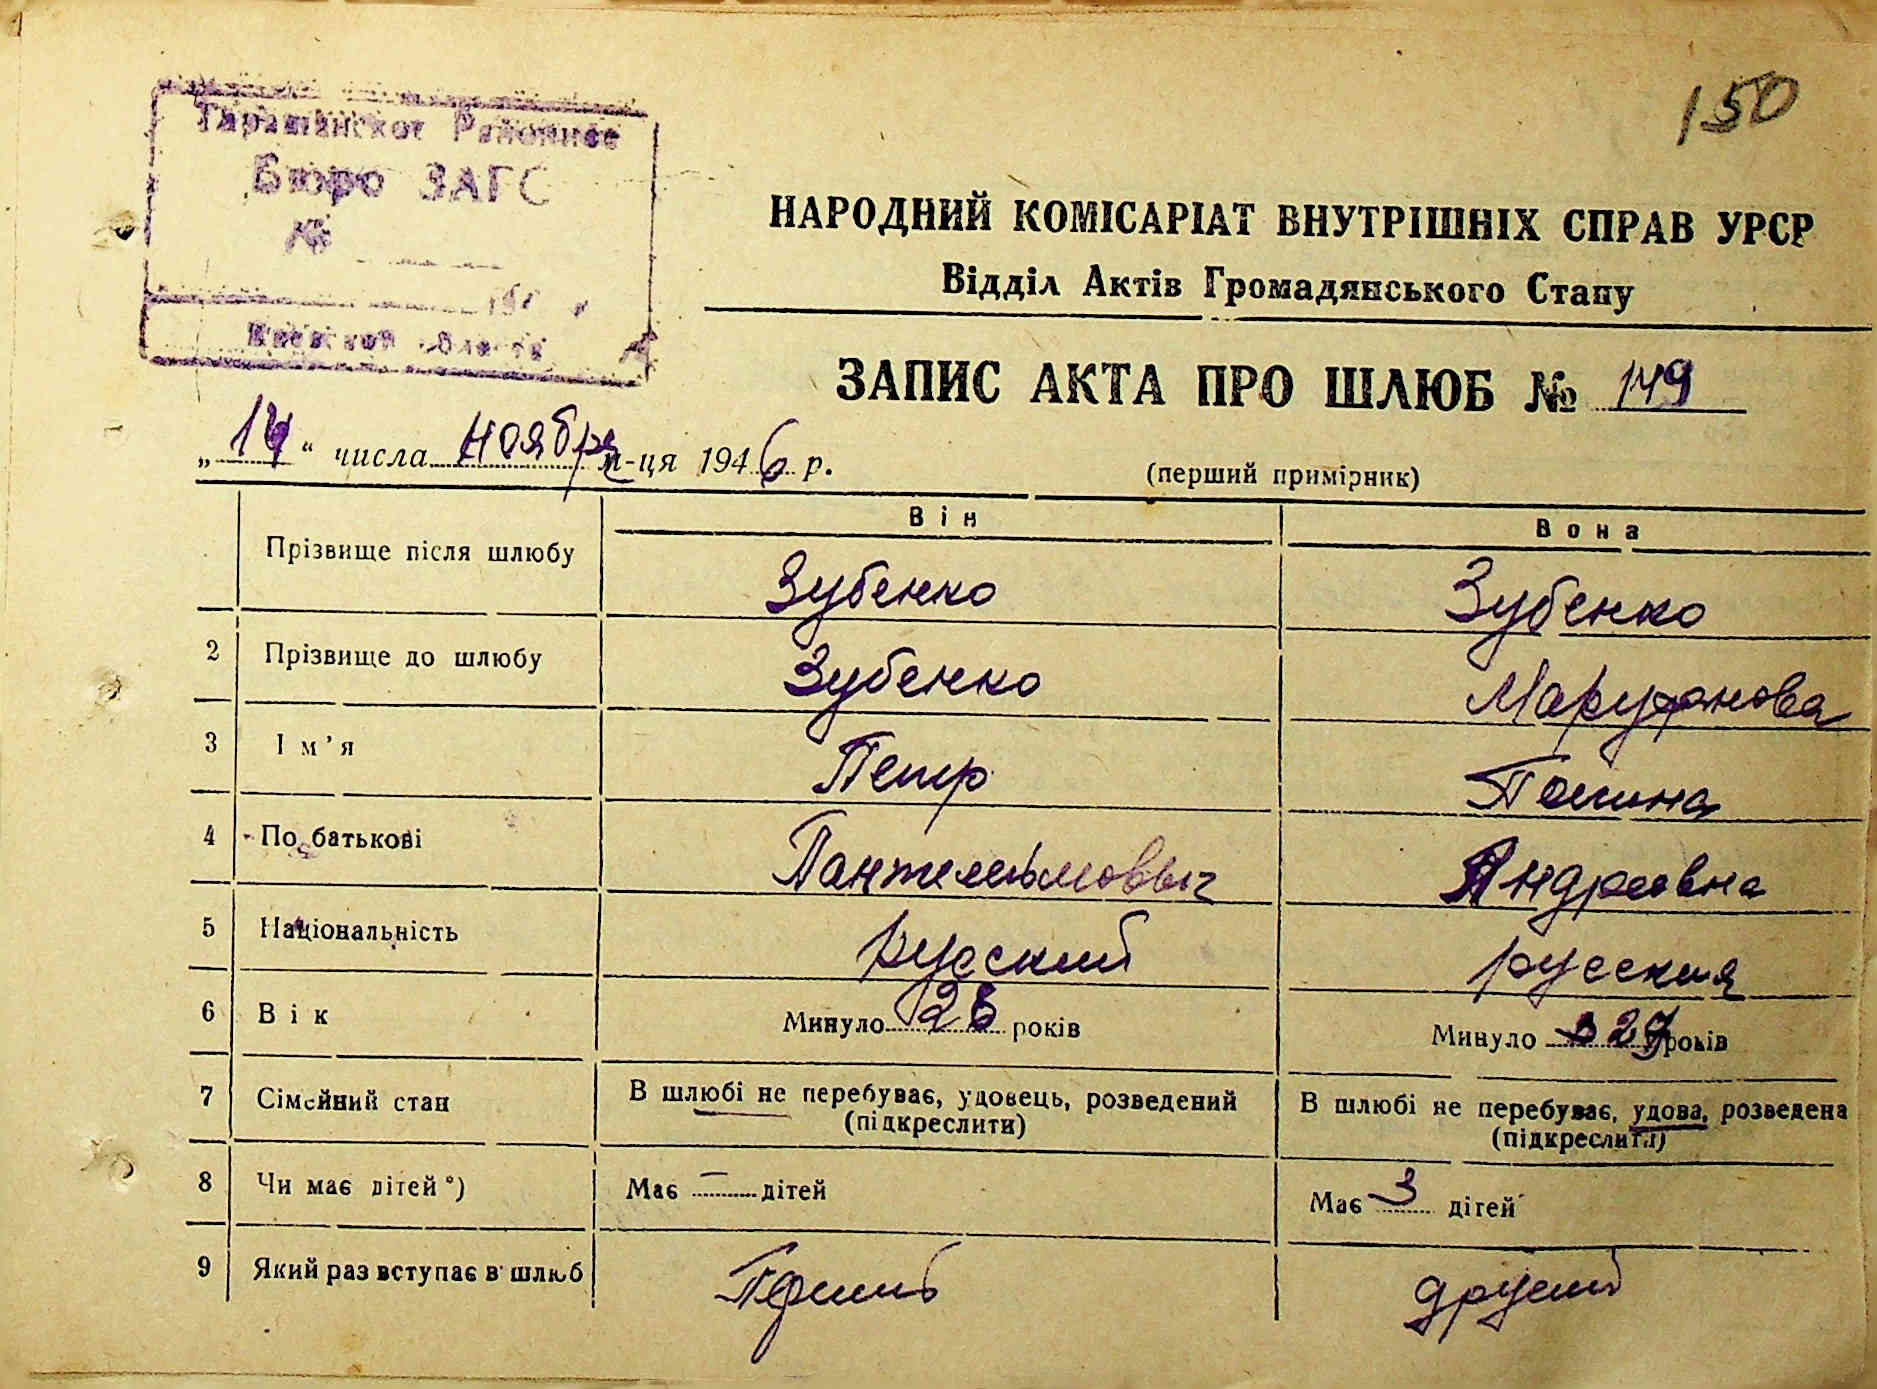 150
Таращанское Районное
Бюро ЗАГС
№
194 г
Киевской области
НАРОДНИЙ КОМІСАРІАТ ВНУТРІШНІХ СПРАВ УРСР
Відділ Актів Громадянського Стану
ЗАПИС АКТА ПРО ШЛЮБ № 149
„14" числа ноября м-ця 1946 р.
(перший примірник)
Він Вона
Прізвище після шлюбу Зубенко Зубенко
2 Прізвище до шлюбу Зубенко
3 Ім'я Петр Полина
4 По батькові Пантелеймовыч Андреевна
5 Національність русский русская
6 Вік Минуло 28 років Минуло 27 років
7 Сімейний стан В шлюбі не перебуває, удовець, розведений В шлюбі не перебуває, удова, розведена
(підкреслити) (підкреслити)
8 Чи має дітей*) Має — дітей Має 3 дітей
9 Який раз вступає в шлюб другий